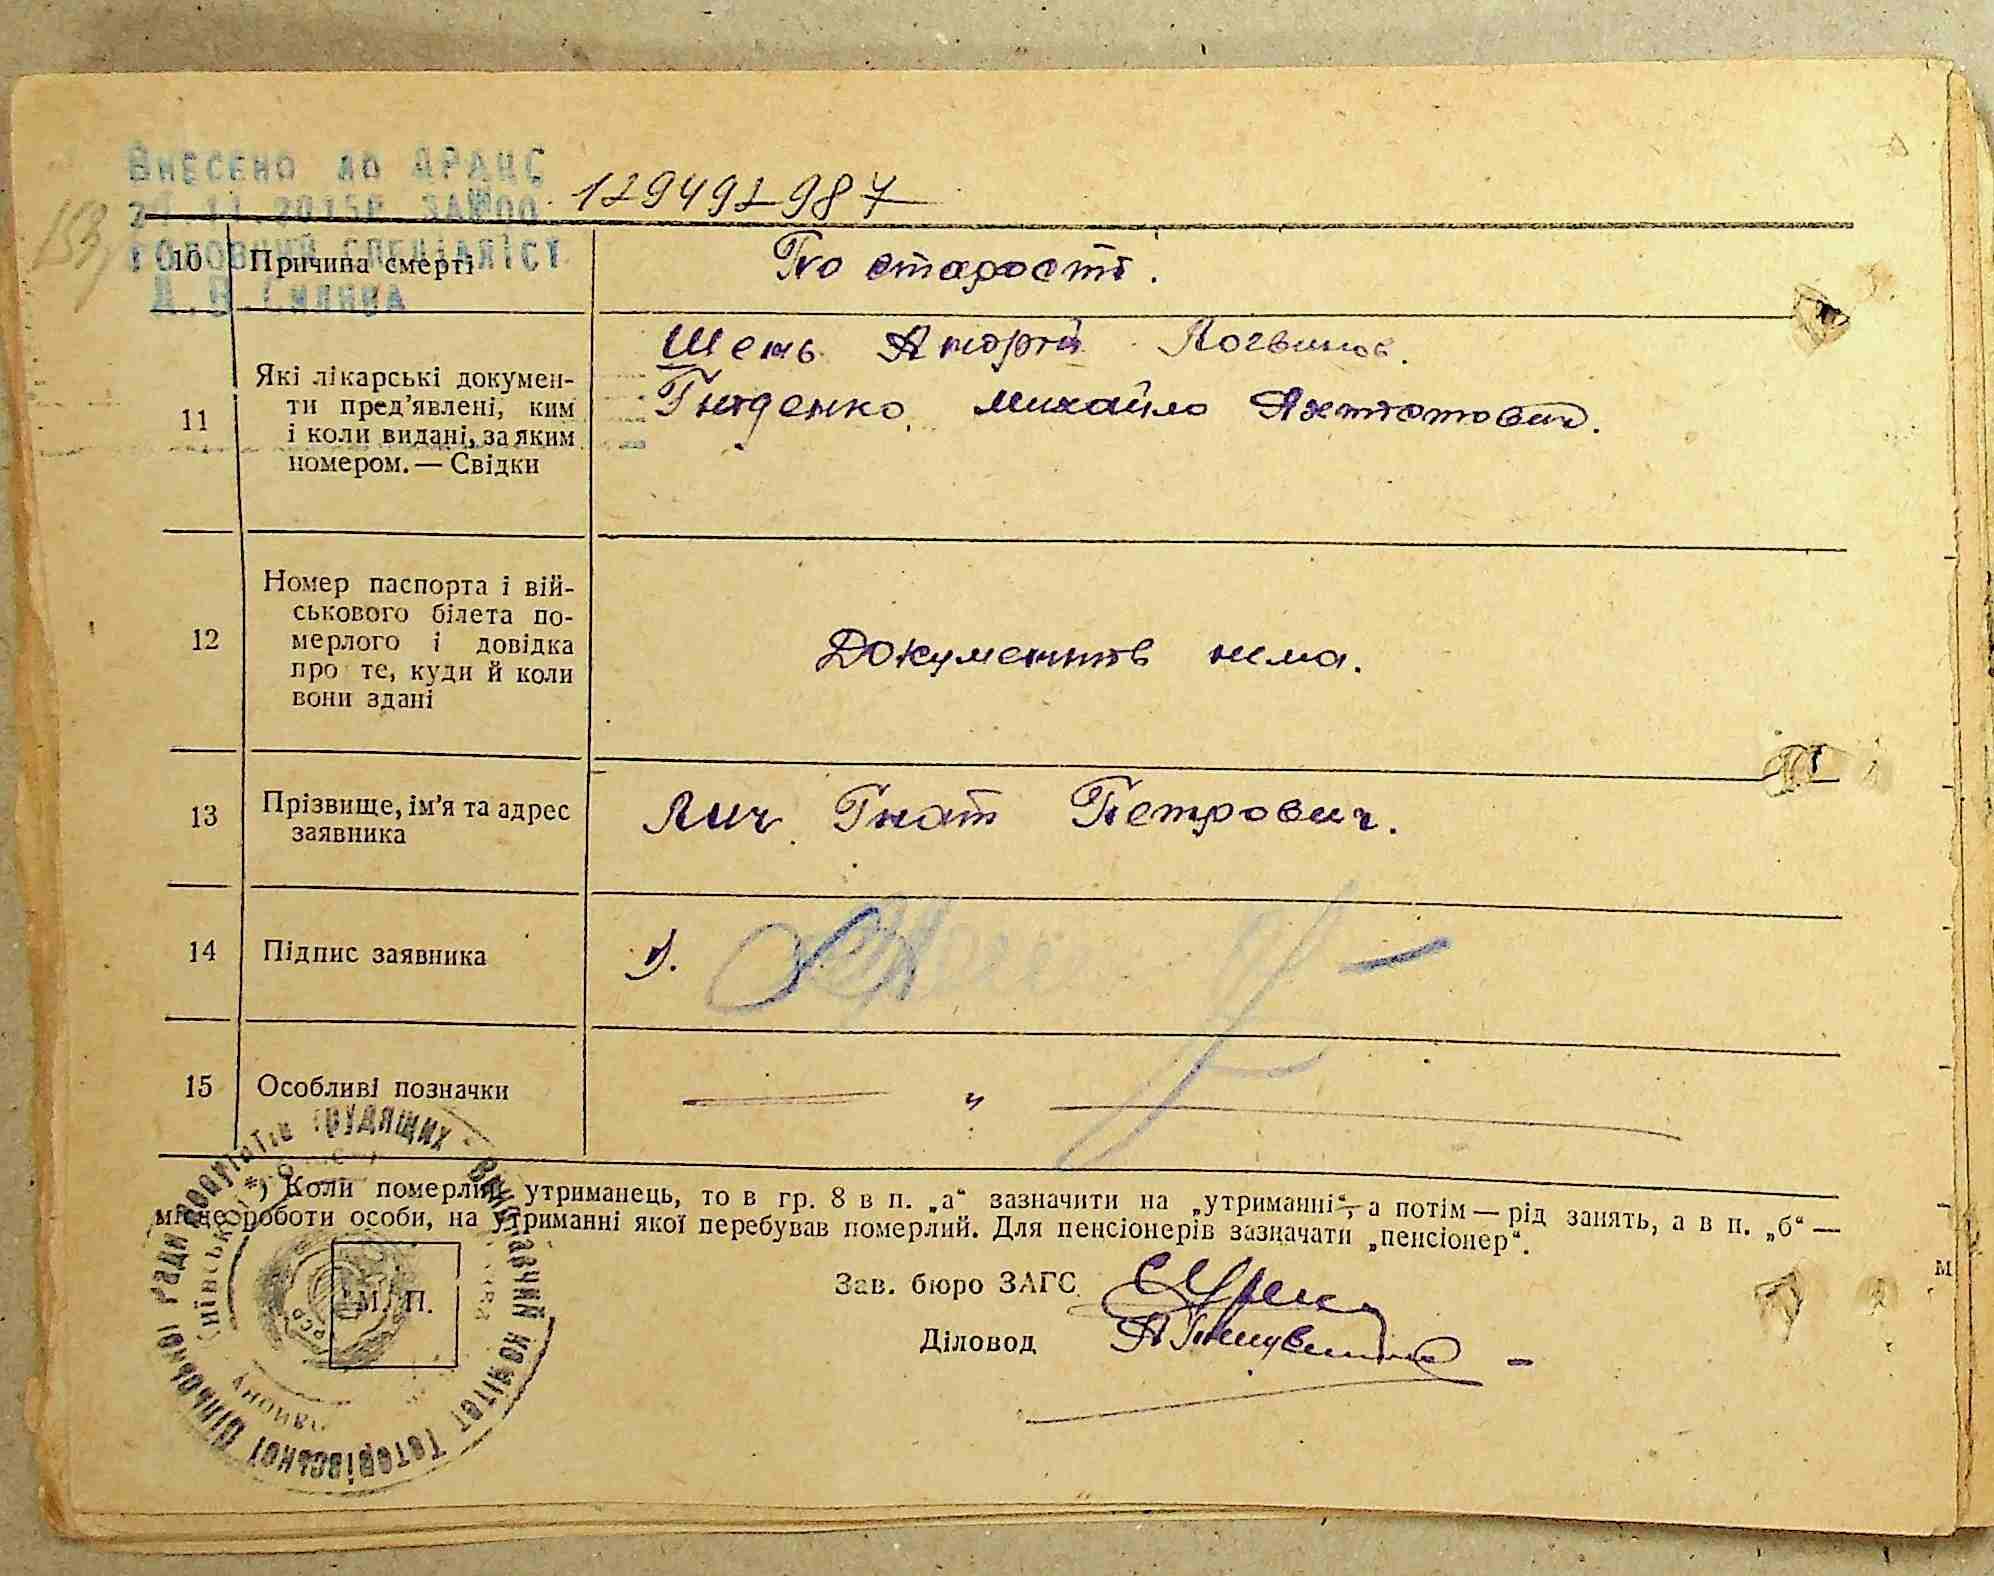 Внесено до ДРАЦС
27.11.2015р. ЗА №00 129492987
головний спеціаліст
153
10 Причина смерті По старості.
11 Які лікарські документи пред'явлені, ким
і коли видані, за яким
номером. — Свідки
Шень Андрій Логвинов.
Гніденко Михайло Антонович.
12 Номер паспорта і вій-
ськового білета по-
мерлого і довідка
про те, куди й коли
вони здані
Документів нема.
13 Прізвище, ім'я та адрес
заявника
Лич Гнат Петрович.
14 Підпис заявника 1).
15 Особливі позначки — " —
*) Коли померлий утриманець, то в гр. 8 в п. „а“ зазначити на „утриманні“, а потім — рід занять, а в п. „б“ —
місце роботи особи, на утриманні якої перебував померлий. Для пенсіонерів зазначати „пенсіонер“.
Зав. бюро ЗАГС
М. П.
Діловод
Виконавчий комітет Тотарівської сільської ради депутатів трудящих
району
РСР